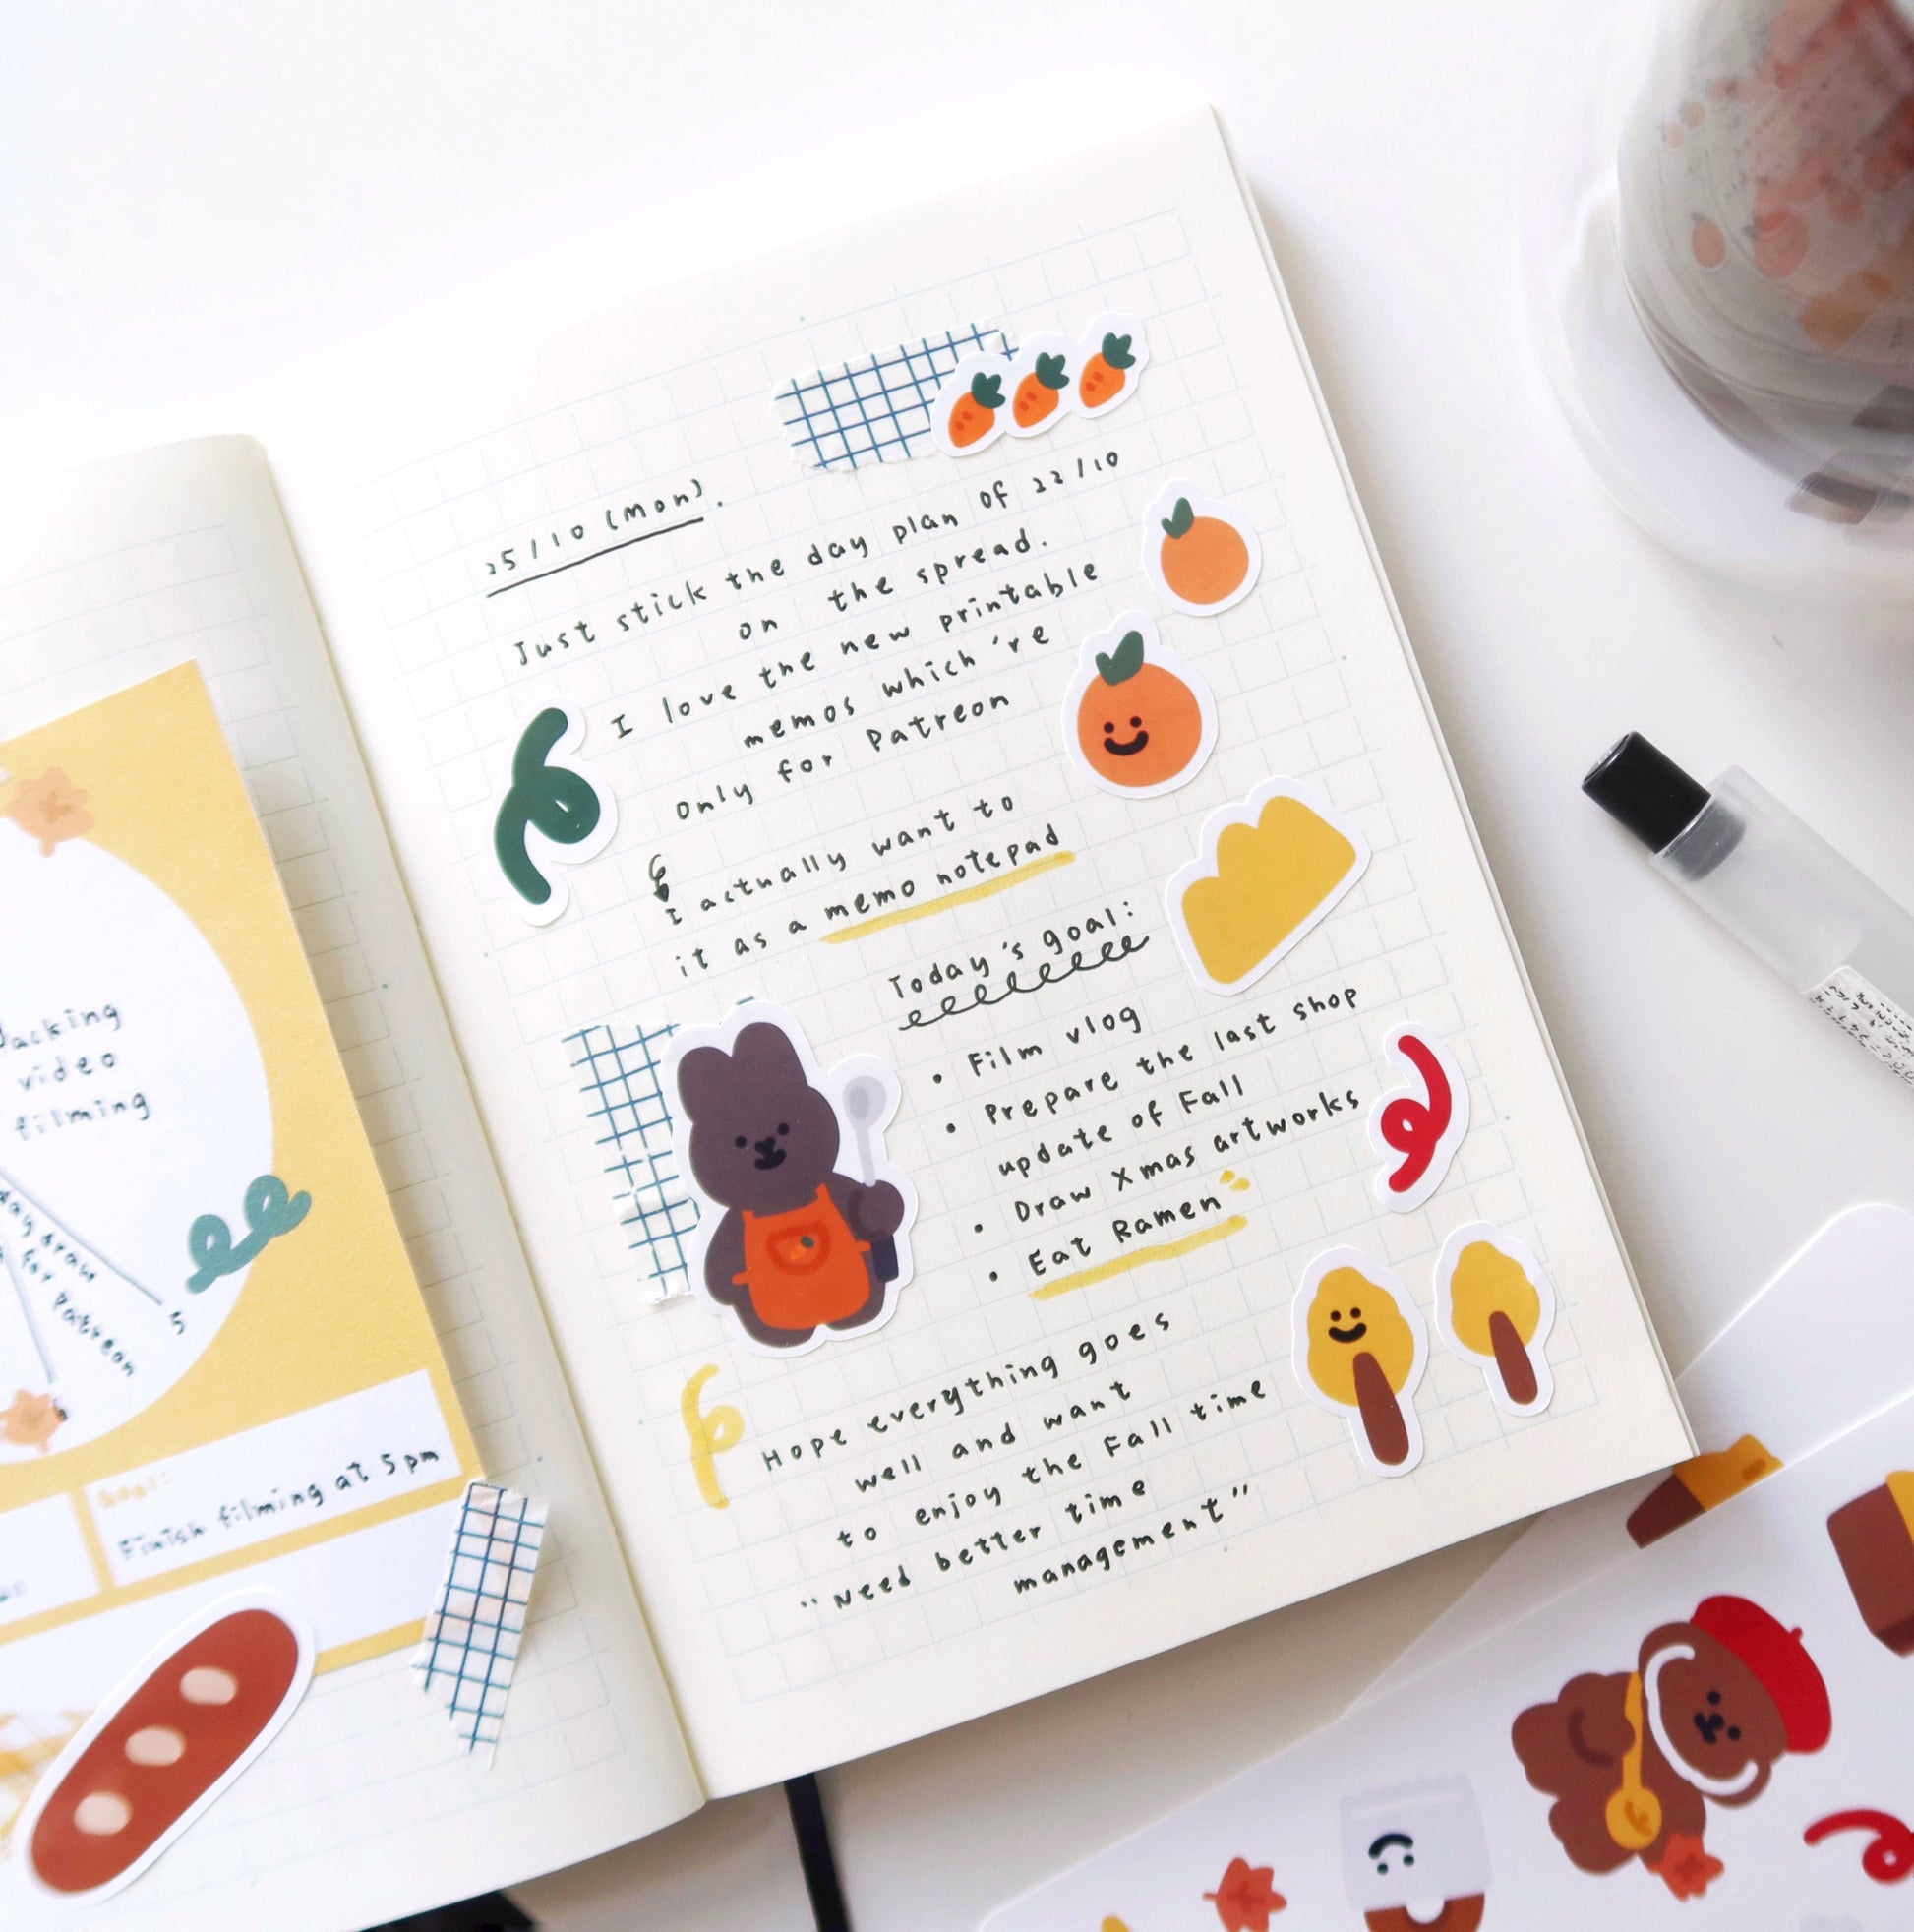 25/10 (Mon).
Just stick the day plan of 22/10
on the spread.
I love the new printable
memos which 're
only for Patreon
I actually want to
it as a memo notepad
Today's goal:
• Film vlog
• Prepare the last shop
update of Fall
• Draw Xmas artworks
• Eat Ramen
Hope everything goes
well and want
to enjoy the Fall time
"Need better time
management"
video
filming
draw
for Patreon
5
6
Goal:
Finish filming at 5pm